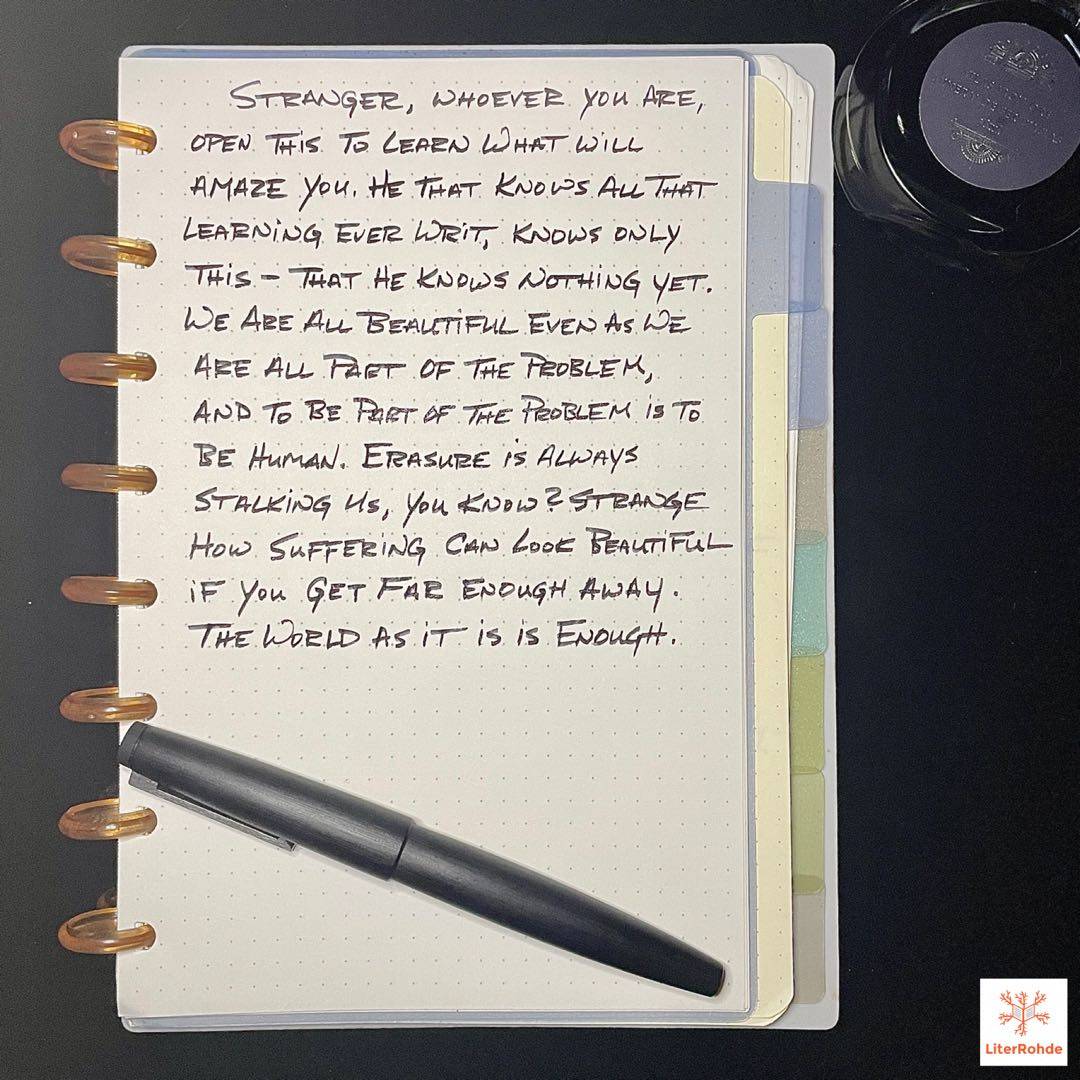 STRANGER, WHOEVER YOU ARE,
OPEN THIS TO LEARN WHAT WILL
AMAZE YOU. HE THAT KNOWS ALL THAT
LEARNING EVER WRIT, KNOWS ONLY
THIS – THAT HE KNOWS NOTHING YET.
WE ARE ALL BEAUTIFUL EVEN AS WE
ARE ALL PART OF THE PROBLEM,
AND TO BE PART OF THE PROBLEM IS TO
BE HUMAN. ERASURE IS ALWAYS
STALKING US, YOU KNOW? STRANGE
HOW SUFFERING CAN LOOK BEAUTIFUL
IF YOU GET FAR ENOUGH AWAY.
THE WORLD AS IT IS IS ENOUGH.
LiterRohde